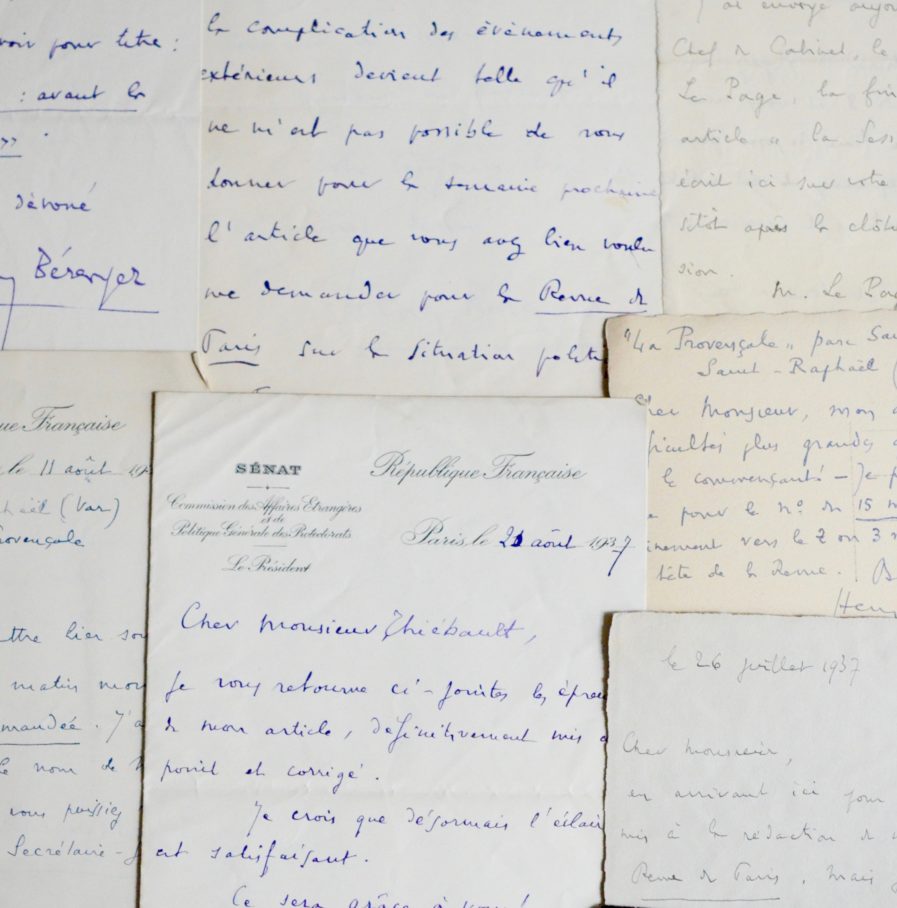 voir pour titre :
: avant la
»» .
dévoué
Bérenger
la complication des événements
extérieurs devient telle qu'il
ne m'est pas possible de vous
donner pour la semaine prochaine
l'article que vous avez bien voulu
me demander pour la Revue de
Paris sur la situation polit
J'ai envoyé aujou
Chef de Cabinet, le
Le Page, la fin
article à la Sess
écrit ici sur votre
sitôt après la clôtu
sion.
M. Le Pag
"La Provençale" parc Sai
Saint-Raphaël (
Cher Monsieur, mon a
ficultés plus grandes
le commençants - Je p
pour le n° du 15 n
vers le 2 ou 3 n
tête de la Revue.
Hen
que Française
le 11 août 193
phaël (Var)
rovençale
ttre hier soi
matin mon
mandée. J'a
le nom de
vous puissiez
Secrétaire-
SÉNAT
Commission des Affaires Etrangères
et de
Politique Générale des Protectorats
Le Président
République Française
Paris, le 21 août 1937
Cher Monsieur Thiébault,
Je vous retourne ci-jointes les épreu
de mon article, définitivement mis a
point et corrigé.
Je crois que désormais l'éclair
est satisfaisant.
Ce sera grâce à vous !
le 26 juillet 1937
Cher Monsieur,
en arrivant ici pour
mis à la rédaction de
Revue de Paris, mais j